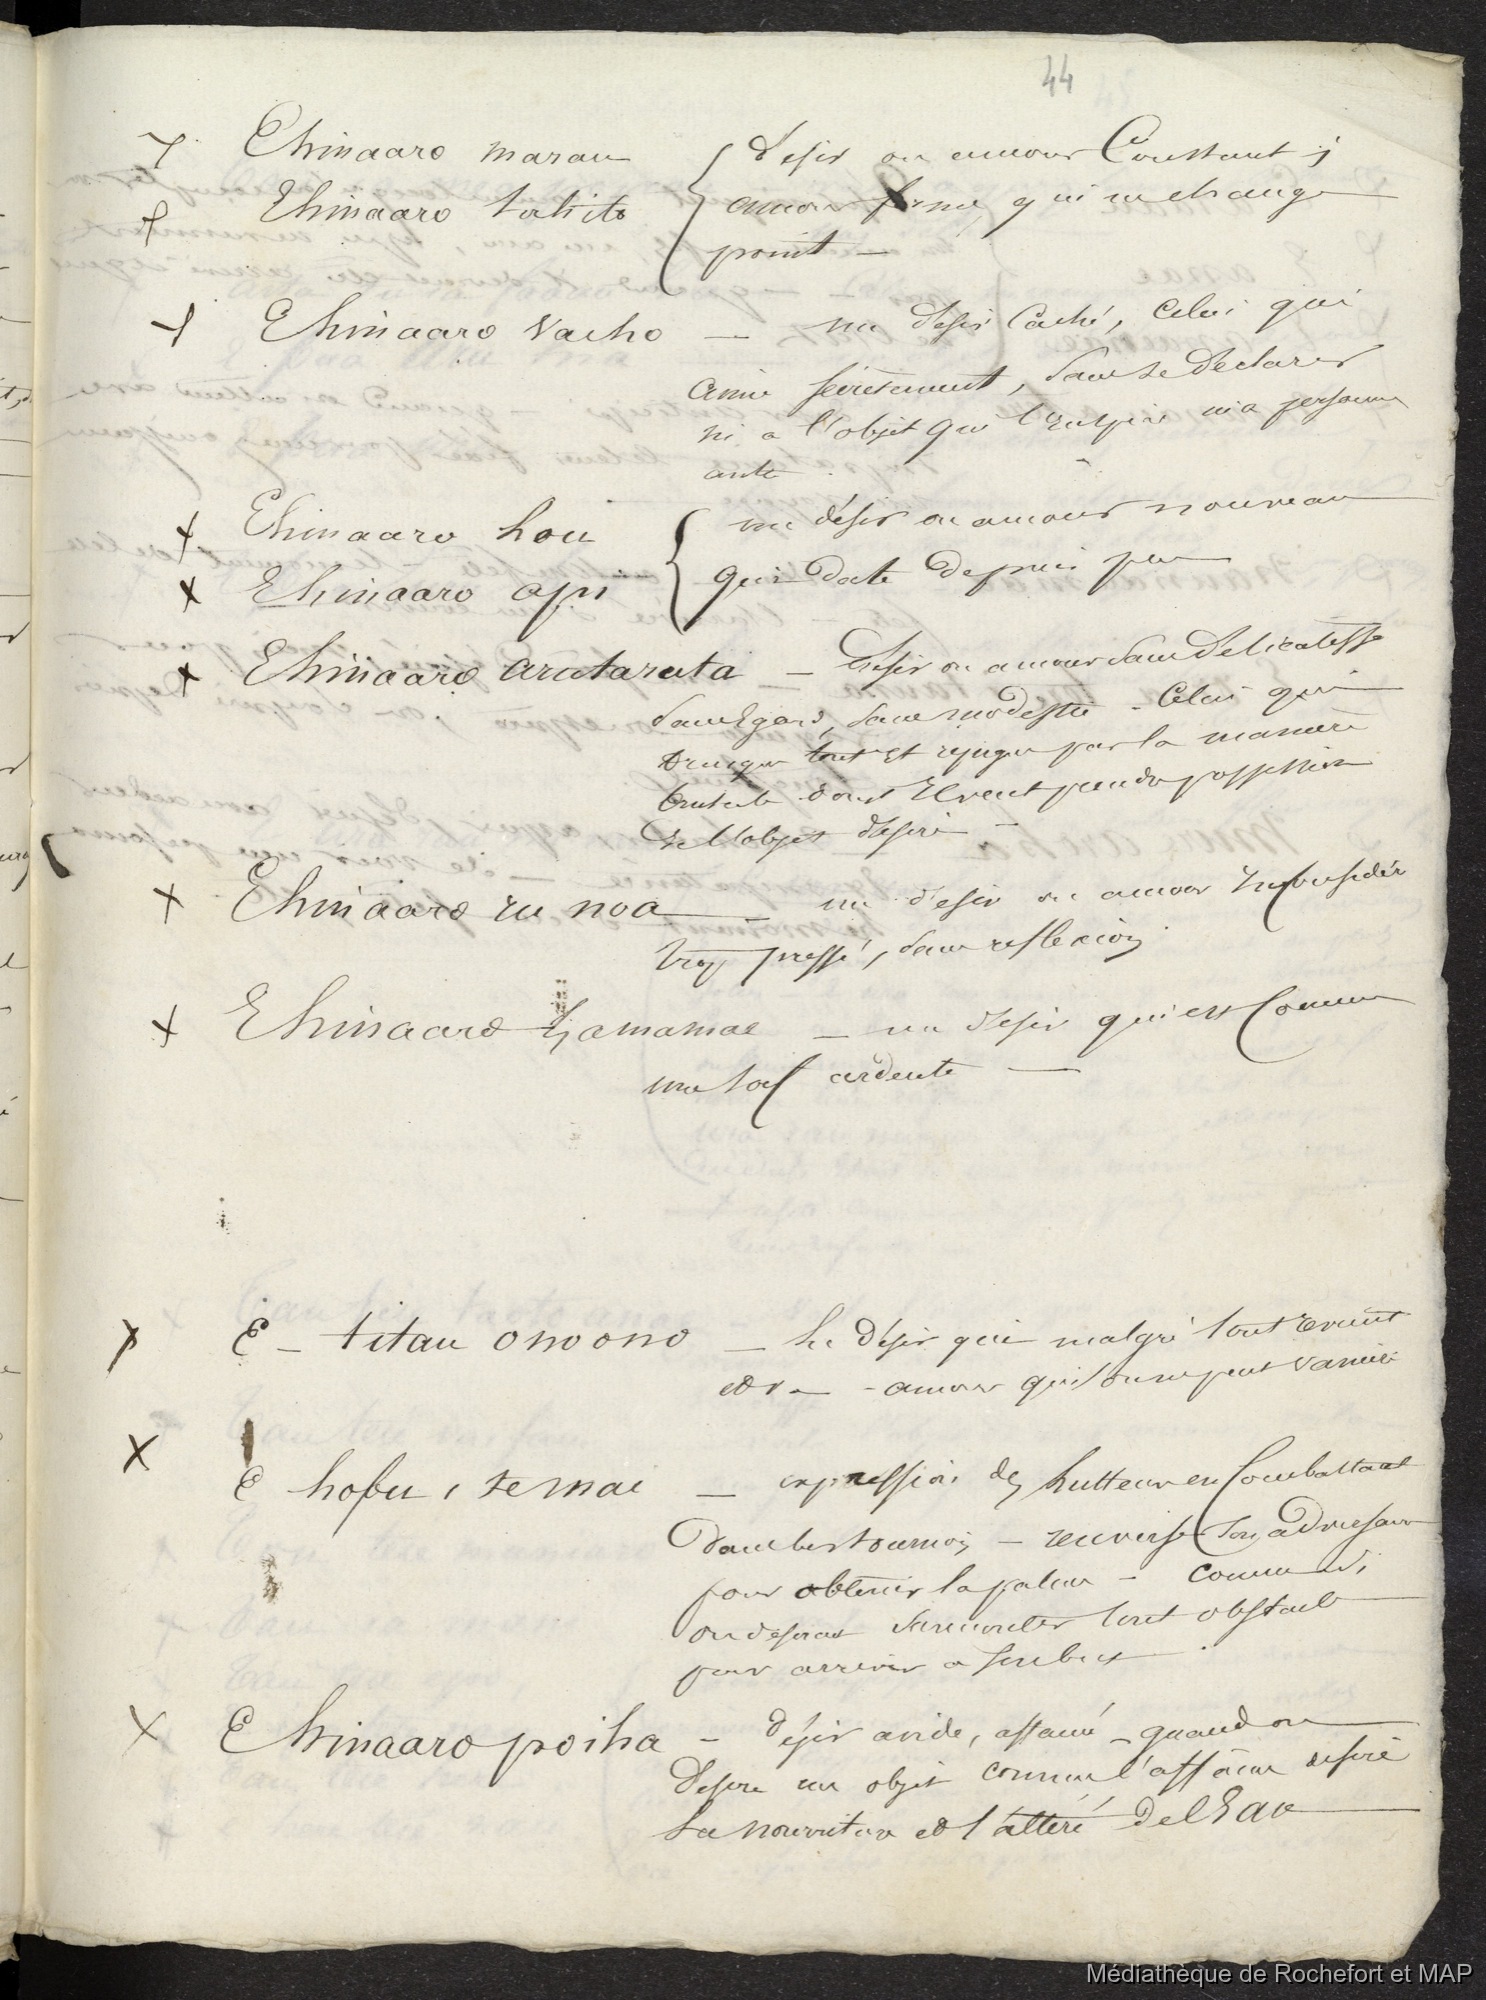 44
Ehinaaro marau { désir ou amour Constant ;
Ehinaaro tutuito amour ferme, qui ne change
point —
Ehinaaro vacho — un desir Caché, celui qui
aime secretement, sans se declarer
ni a l'objet qui l'inspire ni a personne
autre
Ehinaaro hou { un désir ou amour nouveau
Ehinaaro api qui date depuis peu
Ehinaaro arutaruta — desir ou amour sans delicatesse
sans Egard, sans modestie - Celui qui
brusque tout Et repugne par la manière
brutale dont il veut prendre possession
de l'objet desiré —
Ehinaaro ru noa — un desir ou amour inconsidéré
trop pressé, sans reflexion
Ehinaaro hamamae — un desir qui est Comme
une soif ardente —
E - titau onoono — le désir qui malgré tout revient
- amour qu'on ne peut vaincre
E hofu i te mai — expression des lutteurs en Combattant
dans les tournois — renverse son adversaire
pour obtenir la palme - comme si
on desirait surmonter tout obstacle
pour arriver a son but .
E hinaaro poiha — désir avide, affamé - quand on
desire un objet comme l'affamé desire
la nourriture et l'altéré de l'Eau
Médiathèque de Rochefort et MAP